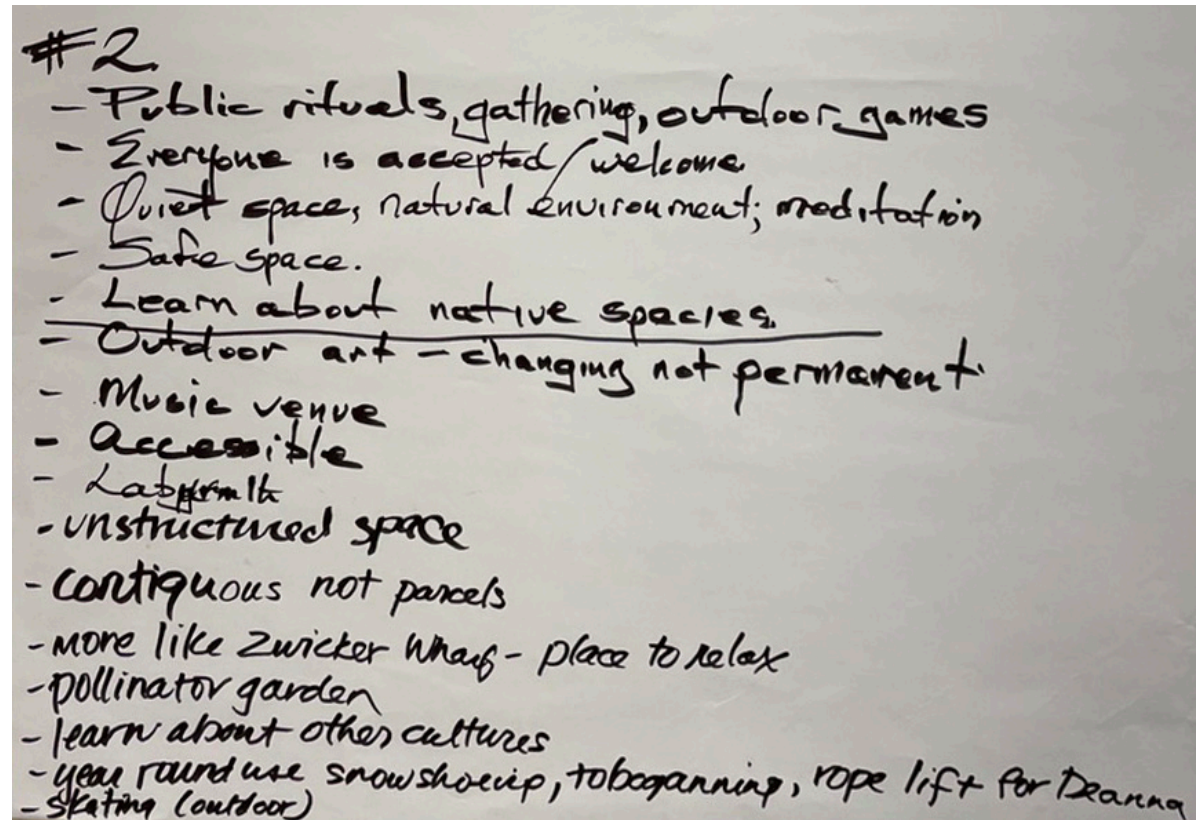 #2
- Public rituals, gathering, outdoor games
- Everyone is accepted/welcome
- Quiet space, natural environment; meditation
- Safe space.
- Learn about native spacies.
- Outdoor art - changing not permanent.
- Music venue
- accessible
- Labyrinth
- unstructured space
- contiguous not parcels
- more like Zwicker Wharf - place to relax
- pollinator garden
- learn about other cultures
- year round use snowshoeing, toboganning, rope lift for Deanna
- skating (outdoor)